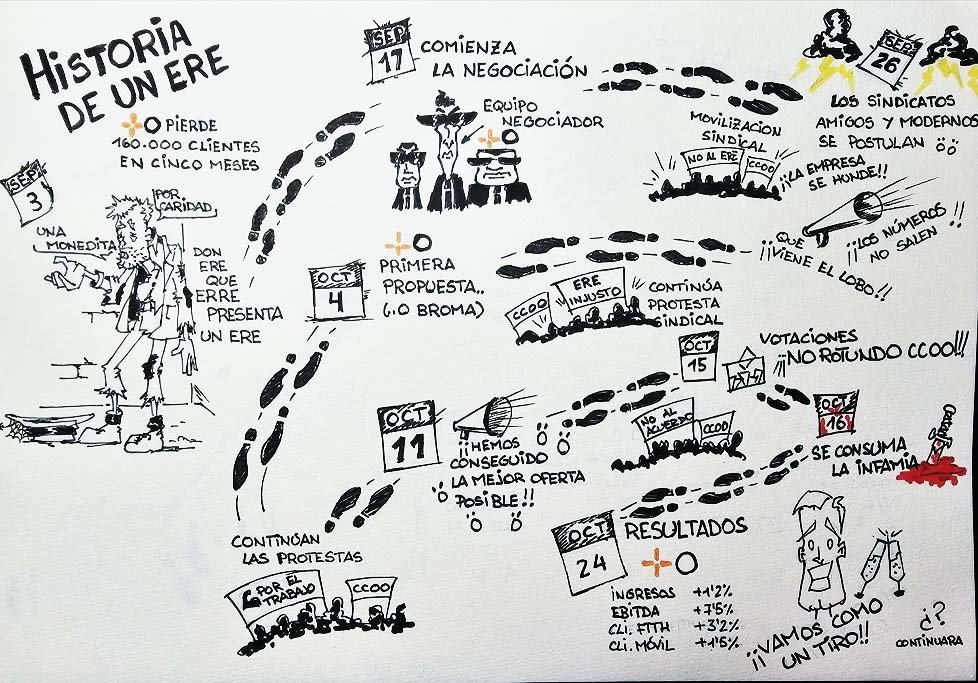 HISTORIA
DE UN ERE
PIERDE
160.000 CLIENTES
EN CINCO MESES
SEP
3
UNA
MONEDITA
POR
CARIDAD
DON
ERE
QUE
ERRE
PRESENTA
UN ERE
SEP
17
COMIENZA
LA NEGOCIACIÓN
EQUIPO
NEGOCIADOR
SEP
26
LOS SINDICATOS
AMIGOS Y MODERNOS
SE POSTULAN
MOVILIZACION
SINDICAL
NO AL ERE
CCOO
¡¡LA EMPRESA
SE HUNDE!!
QUE
¡¡VIENE EL LOBO!!
¡¡LOS NÚMEROS
NO SALEN!!
OCT
4
PRIMERA
PROPUESTA..
(..O BROMA)
CCOO
ERE
INJUSTO
CONTINÚA
PROTESTA
SINDICAL
CONTINÚAN
LAS PROTESTAS
POR EL
TRABAJO
CCOO
OCT
11
¡¡HEMOS
CONSEGUIDO
LA MEJOR OFERTA
POSIBLE!!
NO AL
ACUERDO
CCOO
OCT
15
VOTACIONES
¡¡NO ROTUNDO CCOO!!!
OCT
16
SE CONSUMA
LA INFAMIA
OCT
24
RESULTADOS
INGRESOS +1'2%
EBITDA +7'5%
CLI. FTTH +3'2%
CLI. MÓVIL +1'5%
¡¡VAMOS COMO
UN TIRO!!
¿?
CONTINUARA